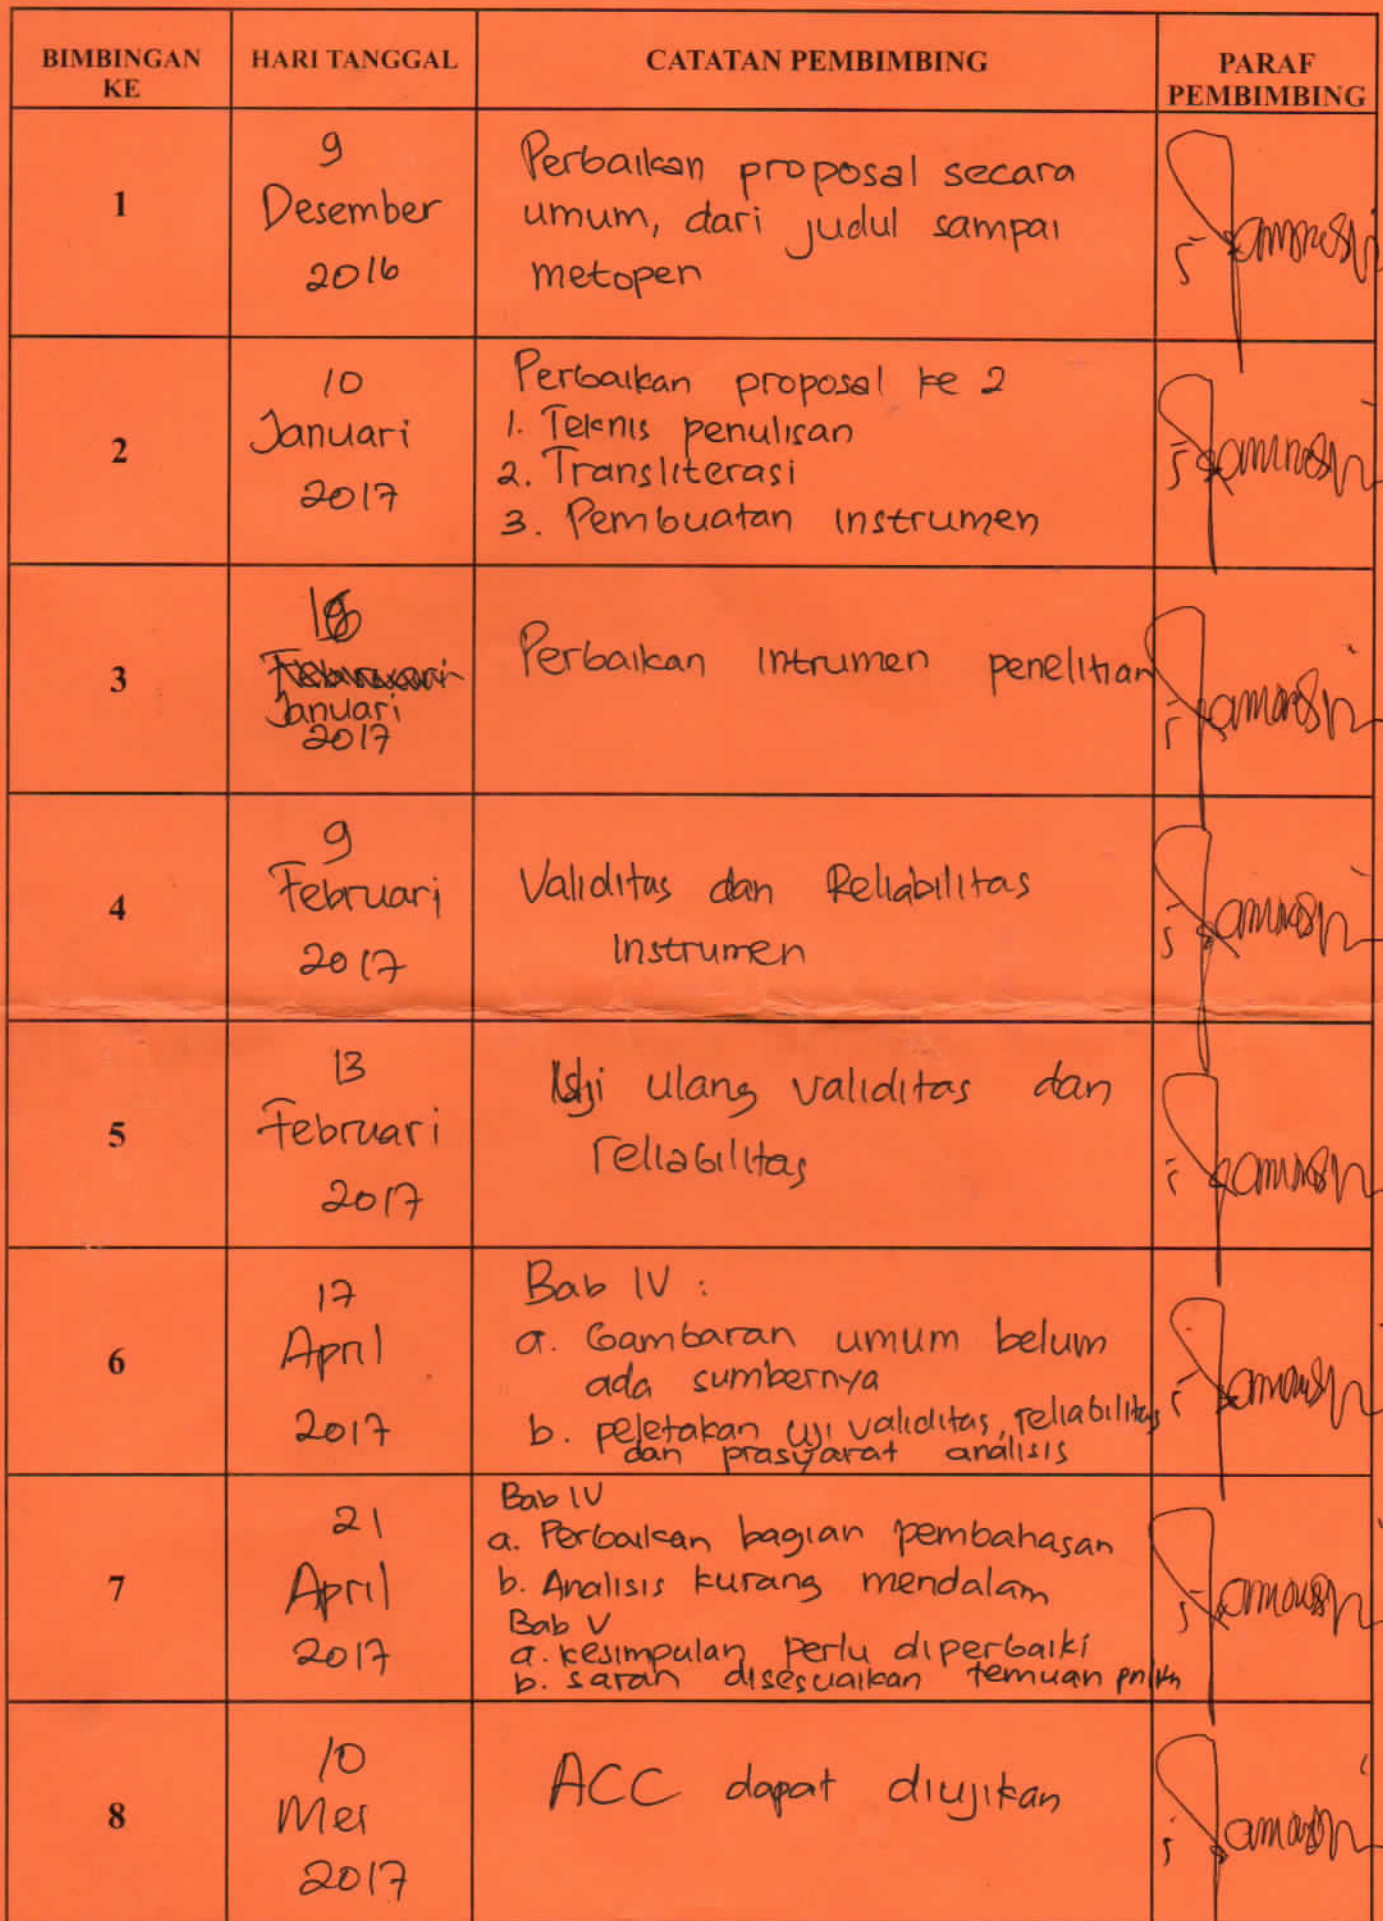 BIMBINGAN KE
HARI TANGGAL
CATATAN PEMBIMBING
PARAF PEMBIMBING
1
9
Desember
2016
Perbaikan proposal secara
umum, dari judul sampai
metopen
2
10
Januari
2017
Perbaikan proposal ke 2
1. Teknis penulisan
2. Transliterasi
3. Pembuatan instrumen
3
Januari
2017
Perbaikan Intrumen penelitian
4
9
Februari
2017
Validitas dan Reliabilitas
Instrumen
5
13
Februari
2017
Uji ulang validitas dan
reliabilitas
6
17
April
2017
Bab IV :
a. Gambaran umum belum
ada sumbernya
b. peletakan uji validitas, reliabilitas
dan prasyarat analisis
7
21
April
2017
Bab IV
a. Perbaikan bagian pembahasan
b. Analisis kurang mendalam
Bab V
a. kesimpulan perlu diperbaiki
b. saran disesuaikan temuan
8
10
Mei
2017
ACC dapat diujikan